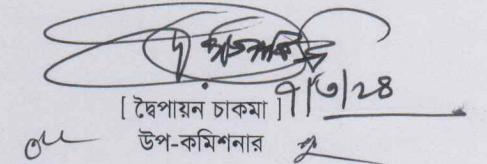 [ দ্বৈপায়ন চাকমা ] ৭/৩/২৪
উপ-কমিশনার